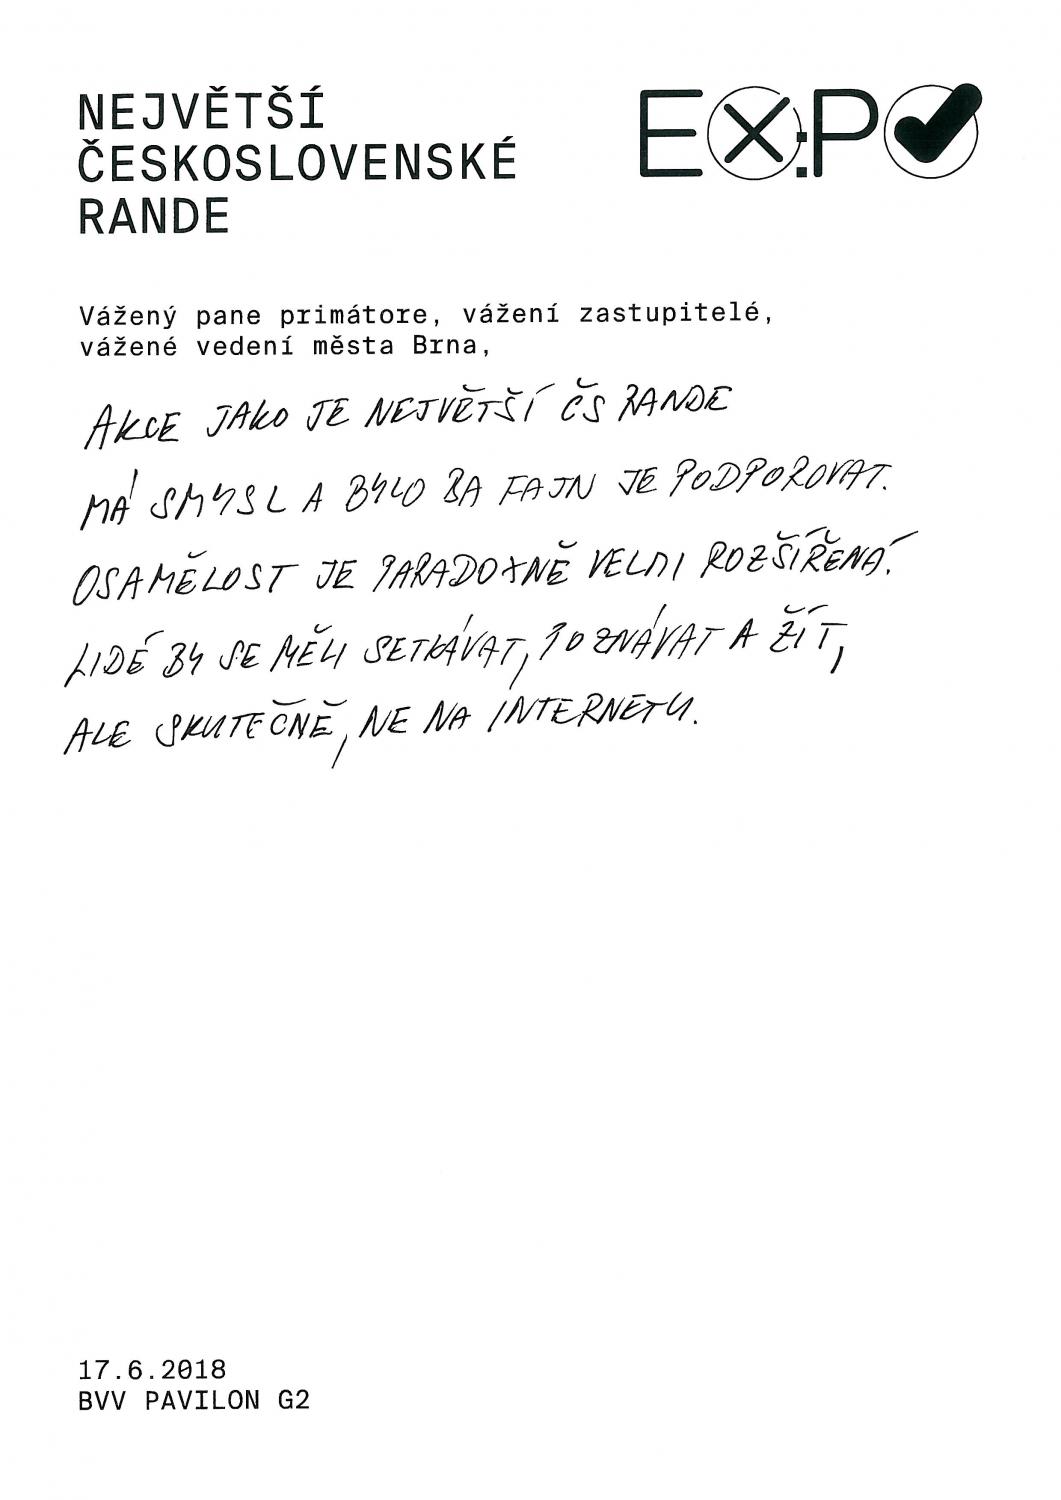 NEJVĚTŠÍ
ČESKOSLOVENSKÉ
RANDE
EX:PO
Vážený pane primátore, vážení zastupitelé,
vážené vedení města Brna,
AKCE JAKO JE NEJVĚTŠÍ ČS RANDE
MÁ SMYSL A BYLO BA FAJN JE PODPOROVAT.
OSAMĚLOST JE PARADOXNĚ VELMI ROZŠÍŘENÁ.
LIDÉ BY SE MĚLI SETKÁVAT, POZNÁVAT A ŽÍT,
ALE SKUTEČNĚ, NE NA INTERNETU.
17.6.2018
BVV PAVILON G2